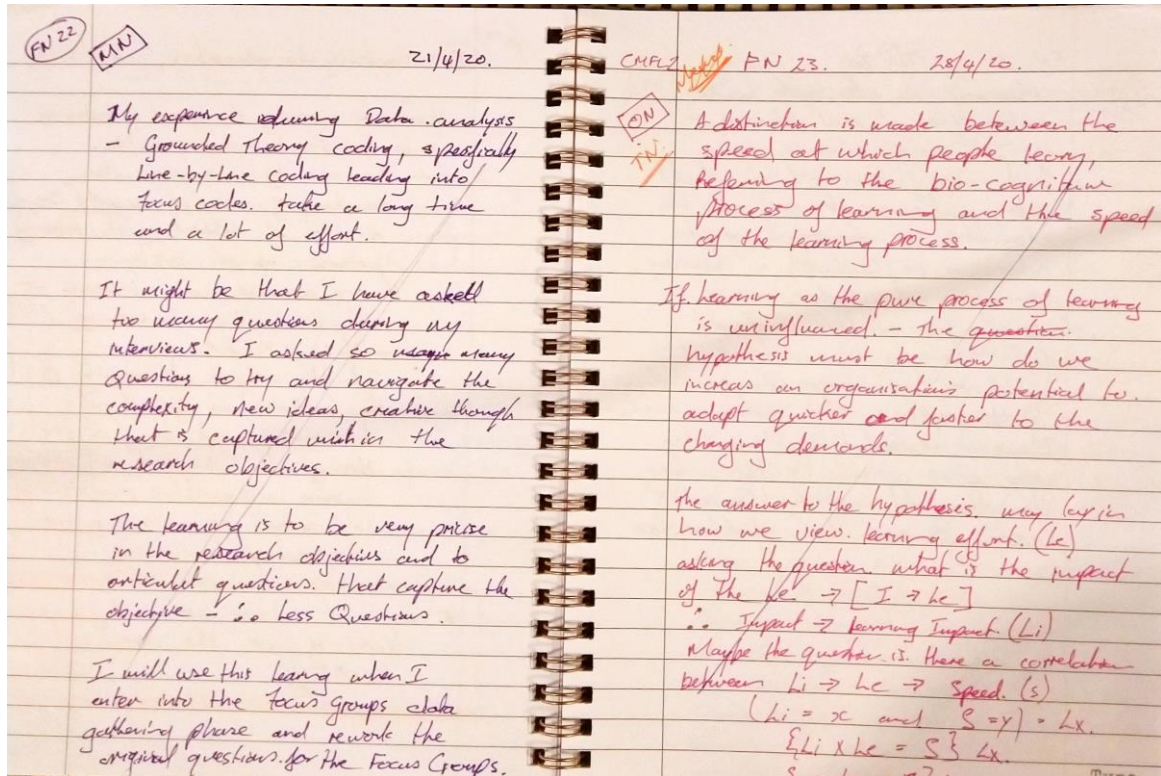 FN 22
MN
21/4/20.
My experience during Data analysis
- Grounded Theory coding, spesfially
Line-by-Line coding leading into
Focus codes. take a long time
and a lot of effort.
It might be that I have asked
too many questions during my
interviews. I asked so many
Questions to try and navigate the
complexity, new ideas, creative though
that is captured within the
research objectives.
The learning is to be very pricise
in the research objectives and to
articulat questions. that capture the
objective - ∴ Less Questions.
I will use this learning when I
enter into the Focus Groups data
gathering phase and rework the
original questions for the Focus Groups.
CMFL2 FN 23. 28/4/20.
ON
TN
A distinction is made between the
speed at which people learn,
Referring to the bio-cognitive
process of learning and the speed
of the learning process.
If Learning as the pure process of learning
is uninfluenced. - The question
hypothesis must be how do we
increas an organisation's potential to.
adapt quicker and faster to the
changing demands.
the answer to the hypothesis may lay in
how we view. learning effort. (Le)
asking the question what is the impact
of the Le. → [I → Le]
∴ Impact → Learning Impact. (Li)
Maybe the question is. there a correlation
between Li → Le → Speed. (S)
(Li = x and S = y) = Lx.
{Li x Le = S} Lx.